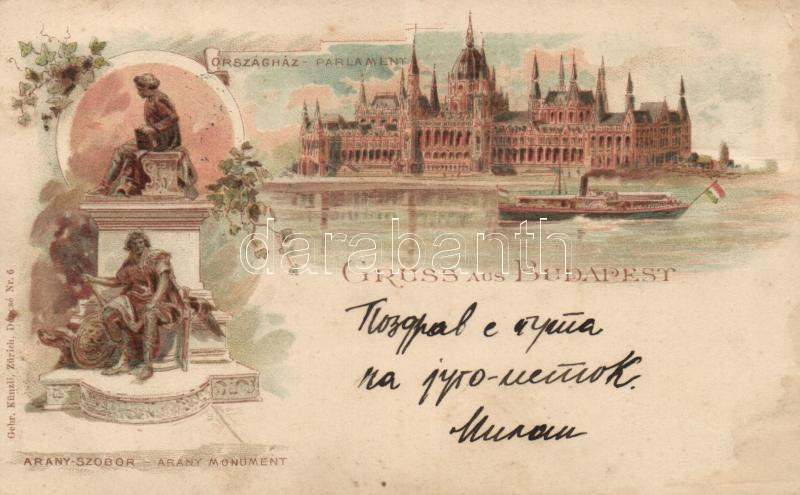 ORSZÁGHÁZ - PARLAMENT
GRUSS AUS BUDAPEST
Поздрав с пута
на југо-исток.
Милан
ARANY-SZOBOR - ARANY MONUMENT
Gebr. Künzli, Zürich, Dépsé Nr. 6
darabanth